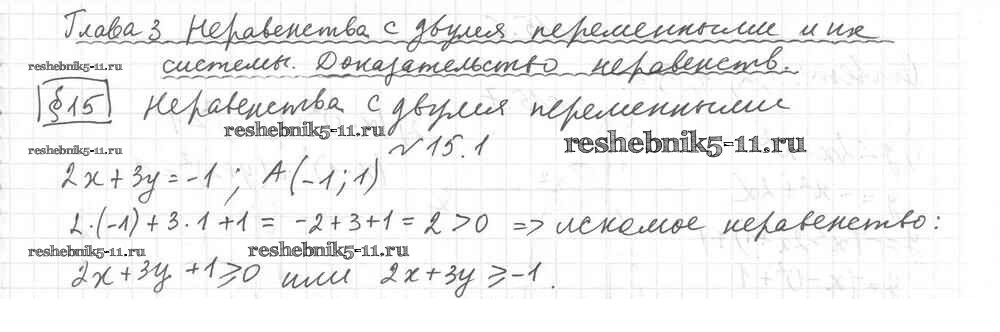 Глава 3 Неравенства с двумя переменными и их
reshebnik5-11.ru
системы. Доказательство неравенств.
§15 Неравенства с двумя переменными
reshebnik5-11.ru
reshebnik5-11.ru
reshebnik5-11.ru
№15.1
2x+3y=-1; A(-1;1)
2·(-1)+3·1+1 = -2+3+1=2>0 => искомое неравенство:
reshebnik5-11.ru
reshebnik5-11.ru
2x+3y+1≥0 или 2x+3y≥-1.